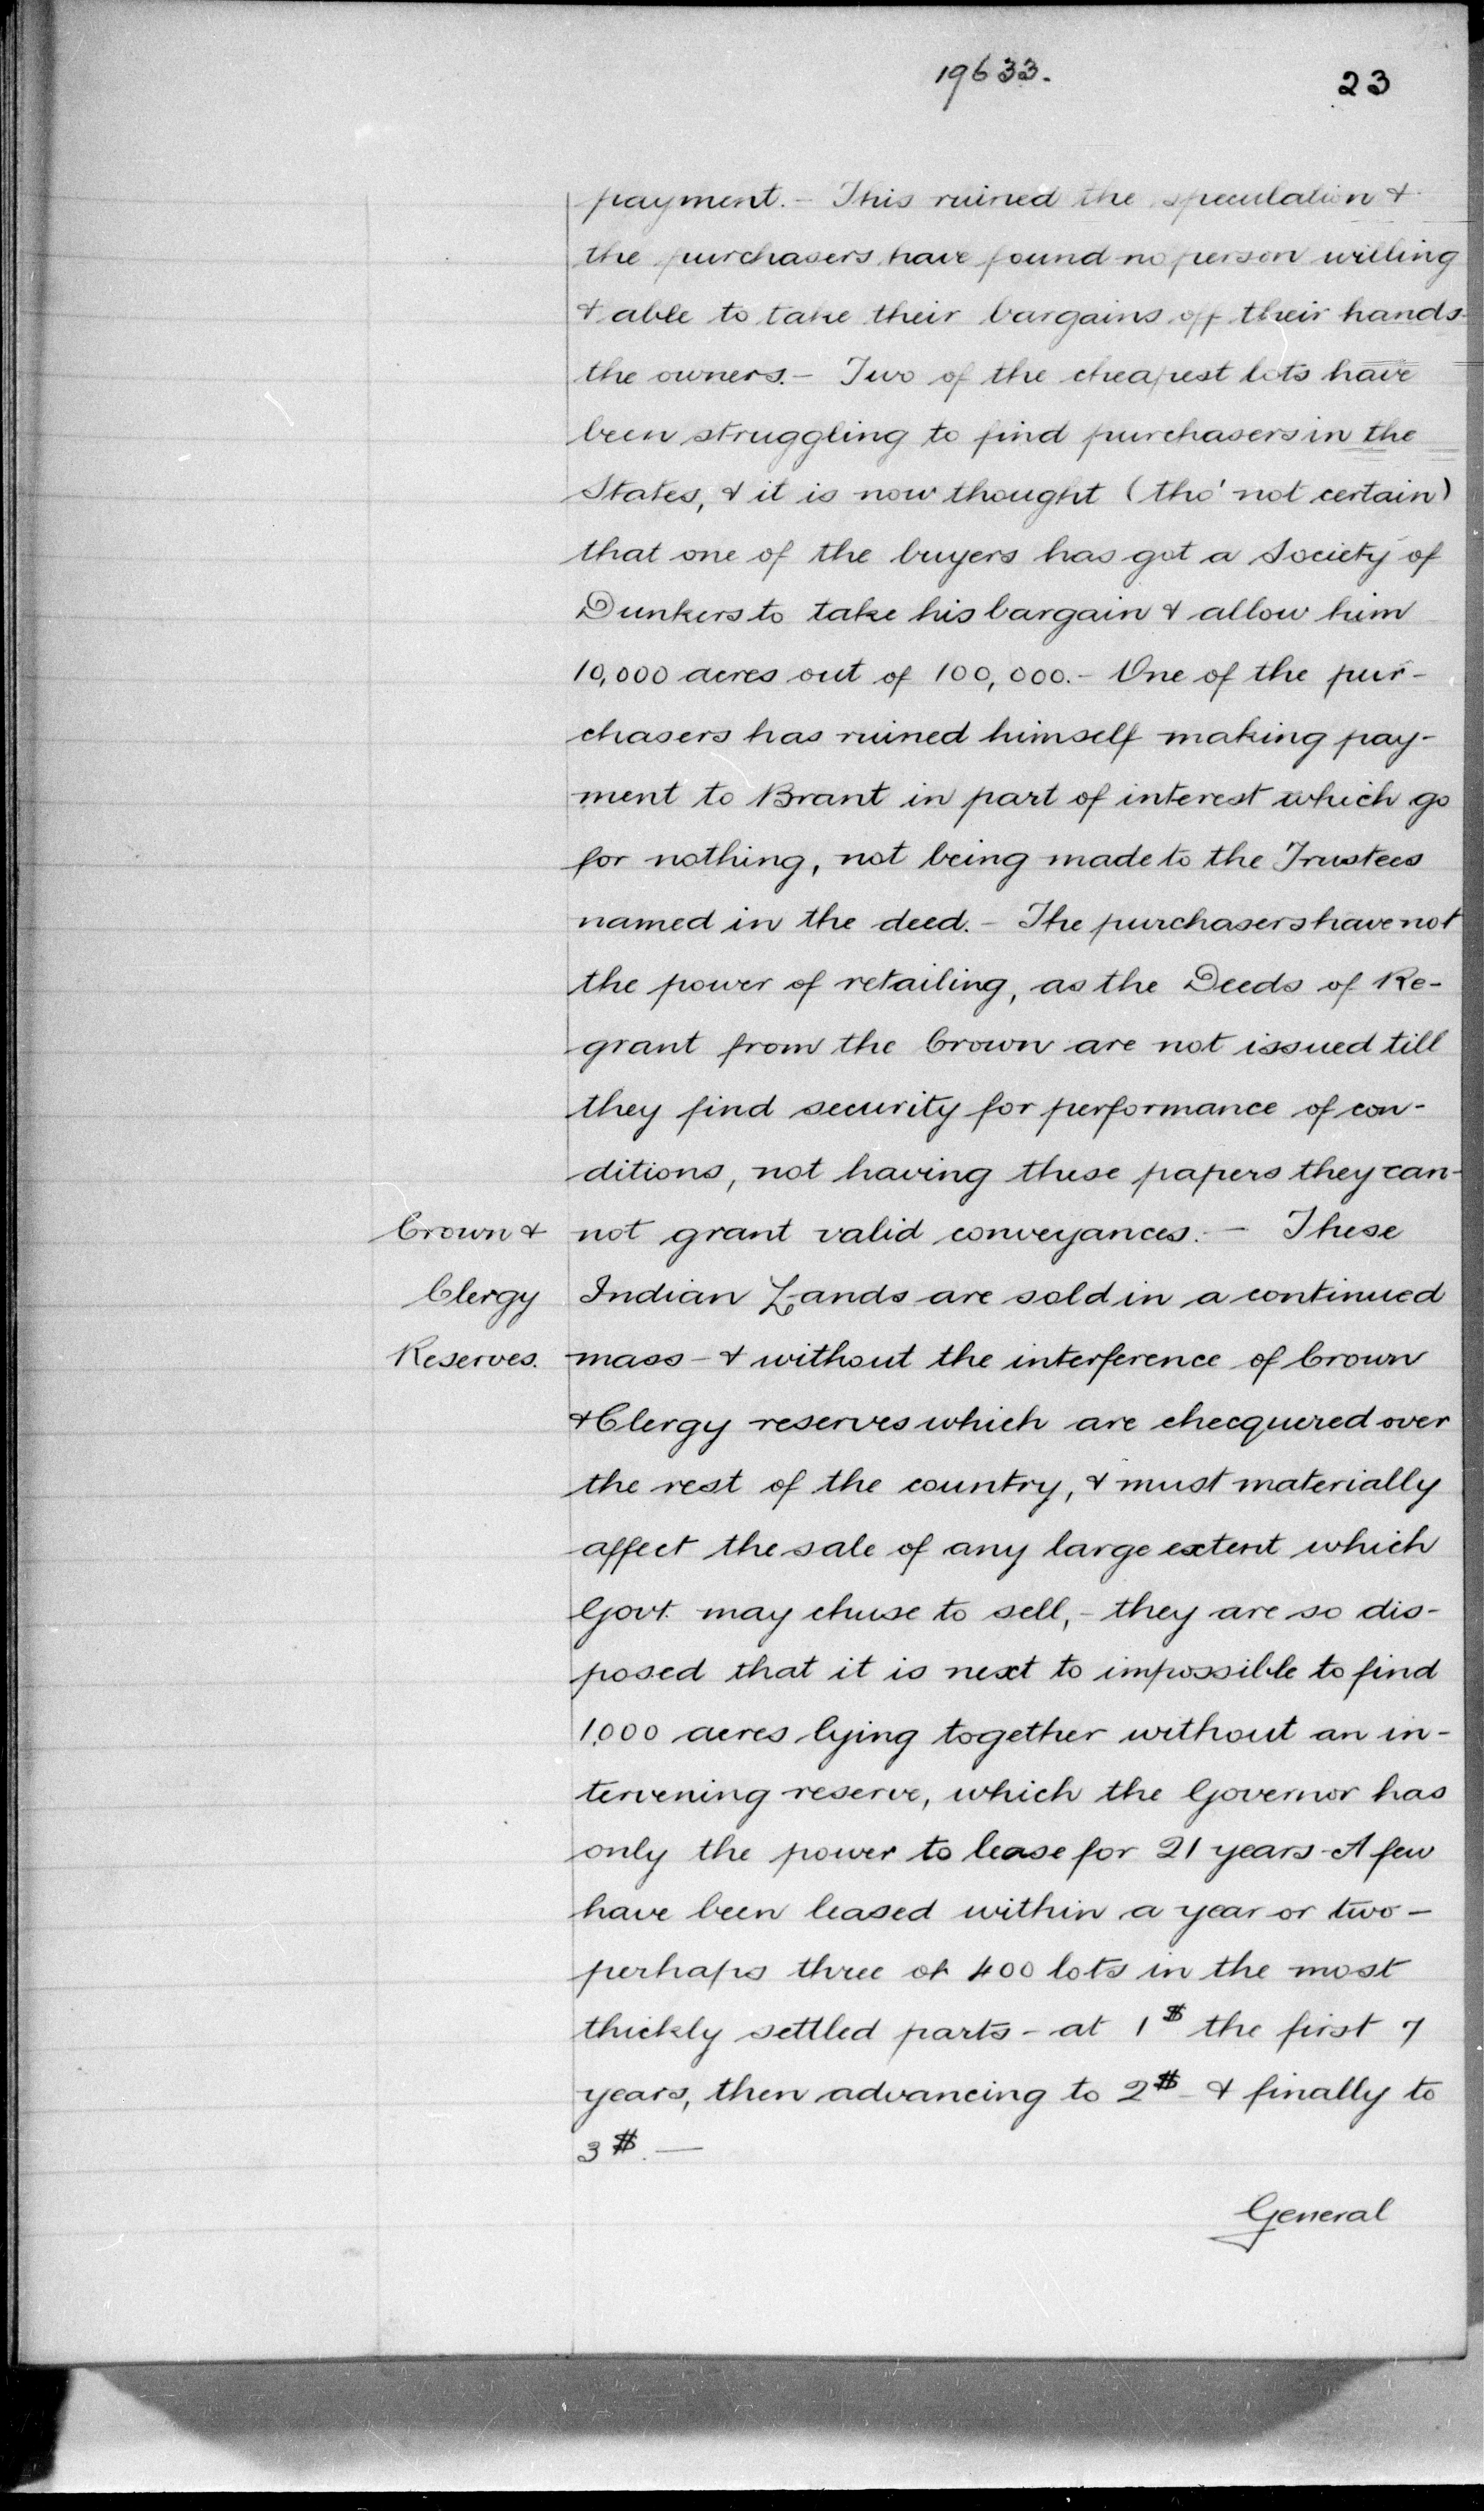 19633.
23
payment. - This ruined the speculation &
the purchasers have found no person willing
& able to take their bargains off their hands-
the owners. - Two of the cheapest lots have
been struggling to find purchasers in the
States, & it is now thought (tho' not certain)
that one of the buyers has got a Society of
Dunkers to take his bargain & allow him
10,000 acres out of 100,000. - One of the pur-
chasers has ruined himself making pay-
ment to Brant in part of interest which go
for nothing, not being made to the Trustees
named in the deed. - The purchasers have not
the power of retailing, as the Deeds of Re-
grant from the Crown are not issued till
they find security for performance of con-
ditions, not having these papers they can-
Crown & not grant valid conveyances. - These
Clergy Indian Lands are sold in a continued
Reserves. mass - & without the interference of Crown
& Clergy reserves which are checquered over
the rest of the country, & must materially
affect the sale of any large extent which
Govt. may chuse to sell, - they are so dis-
posed that it is next to impossible to find
1,000 acres lying together without an in-
tervening reserve, which the Governor has
only the power to lease for 21 years - A few
have been leased within a year or two -
perhaps three or 400 lots in the most
thickly settled parts - at 1$ the first 7
years, then advancing to 2$ - & finally to
3$. -
General